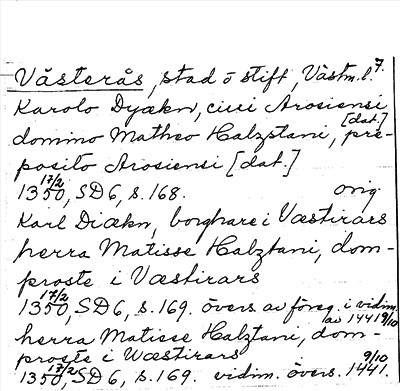 Västerås, stad o stift, Västm.l. 7.
Karolo Dyækn, ciui Arosiensi
[dat.]
domino Matheo Halzstani, pre-
posito Arosiensi [dat.]
17/2
1350, SD6, s. 168. orig.
Karl Diækn, borghare i Væstirars
herra Matisse Halzstani, dom-
proste i Væstirars
17/2
1350, SD6, s. 169. övers. av föreg. i vidim.
av 1441 9/10
herra Matisse Halzstani, dom-
proste i Wæstirars
17/2 9/10
1350, SD6, s. 169. vidim. övers. 1441.